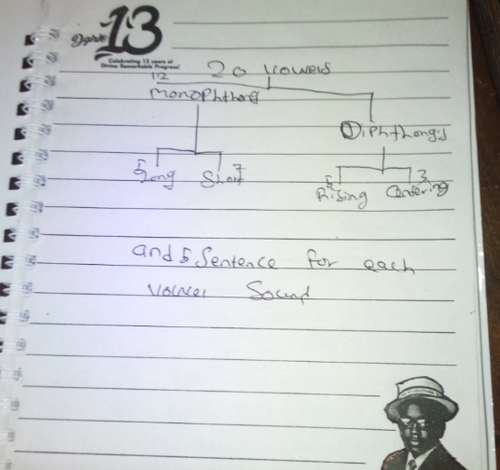 Dgrin 13
Celebrating 13 years of
Divine Remarkable Progress!
20 vowels
12
Monophthong
Diphthongs
5 long 7 Short
5 Rising 3 Centering
and 5 Sentence for each
vowel Sound